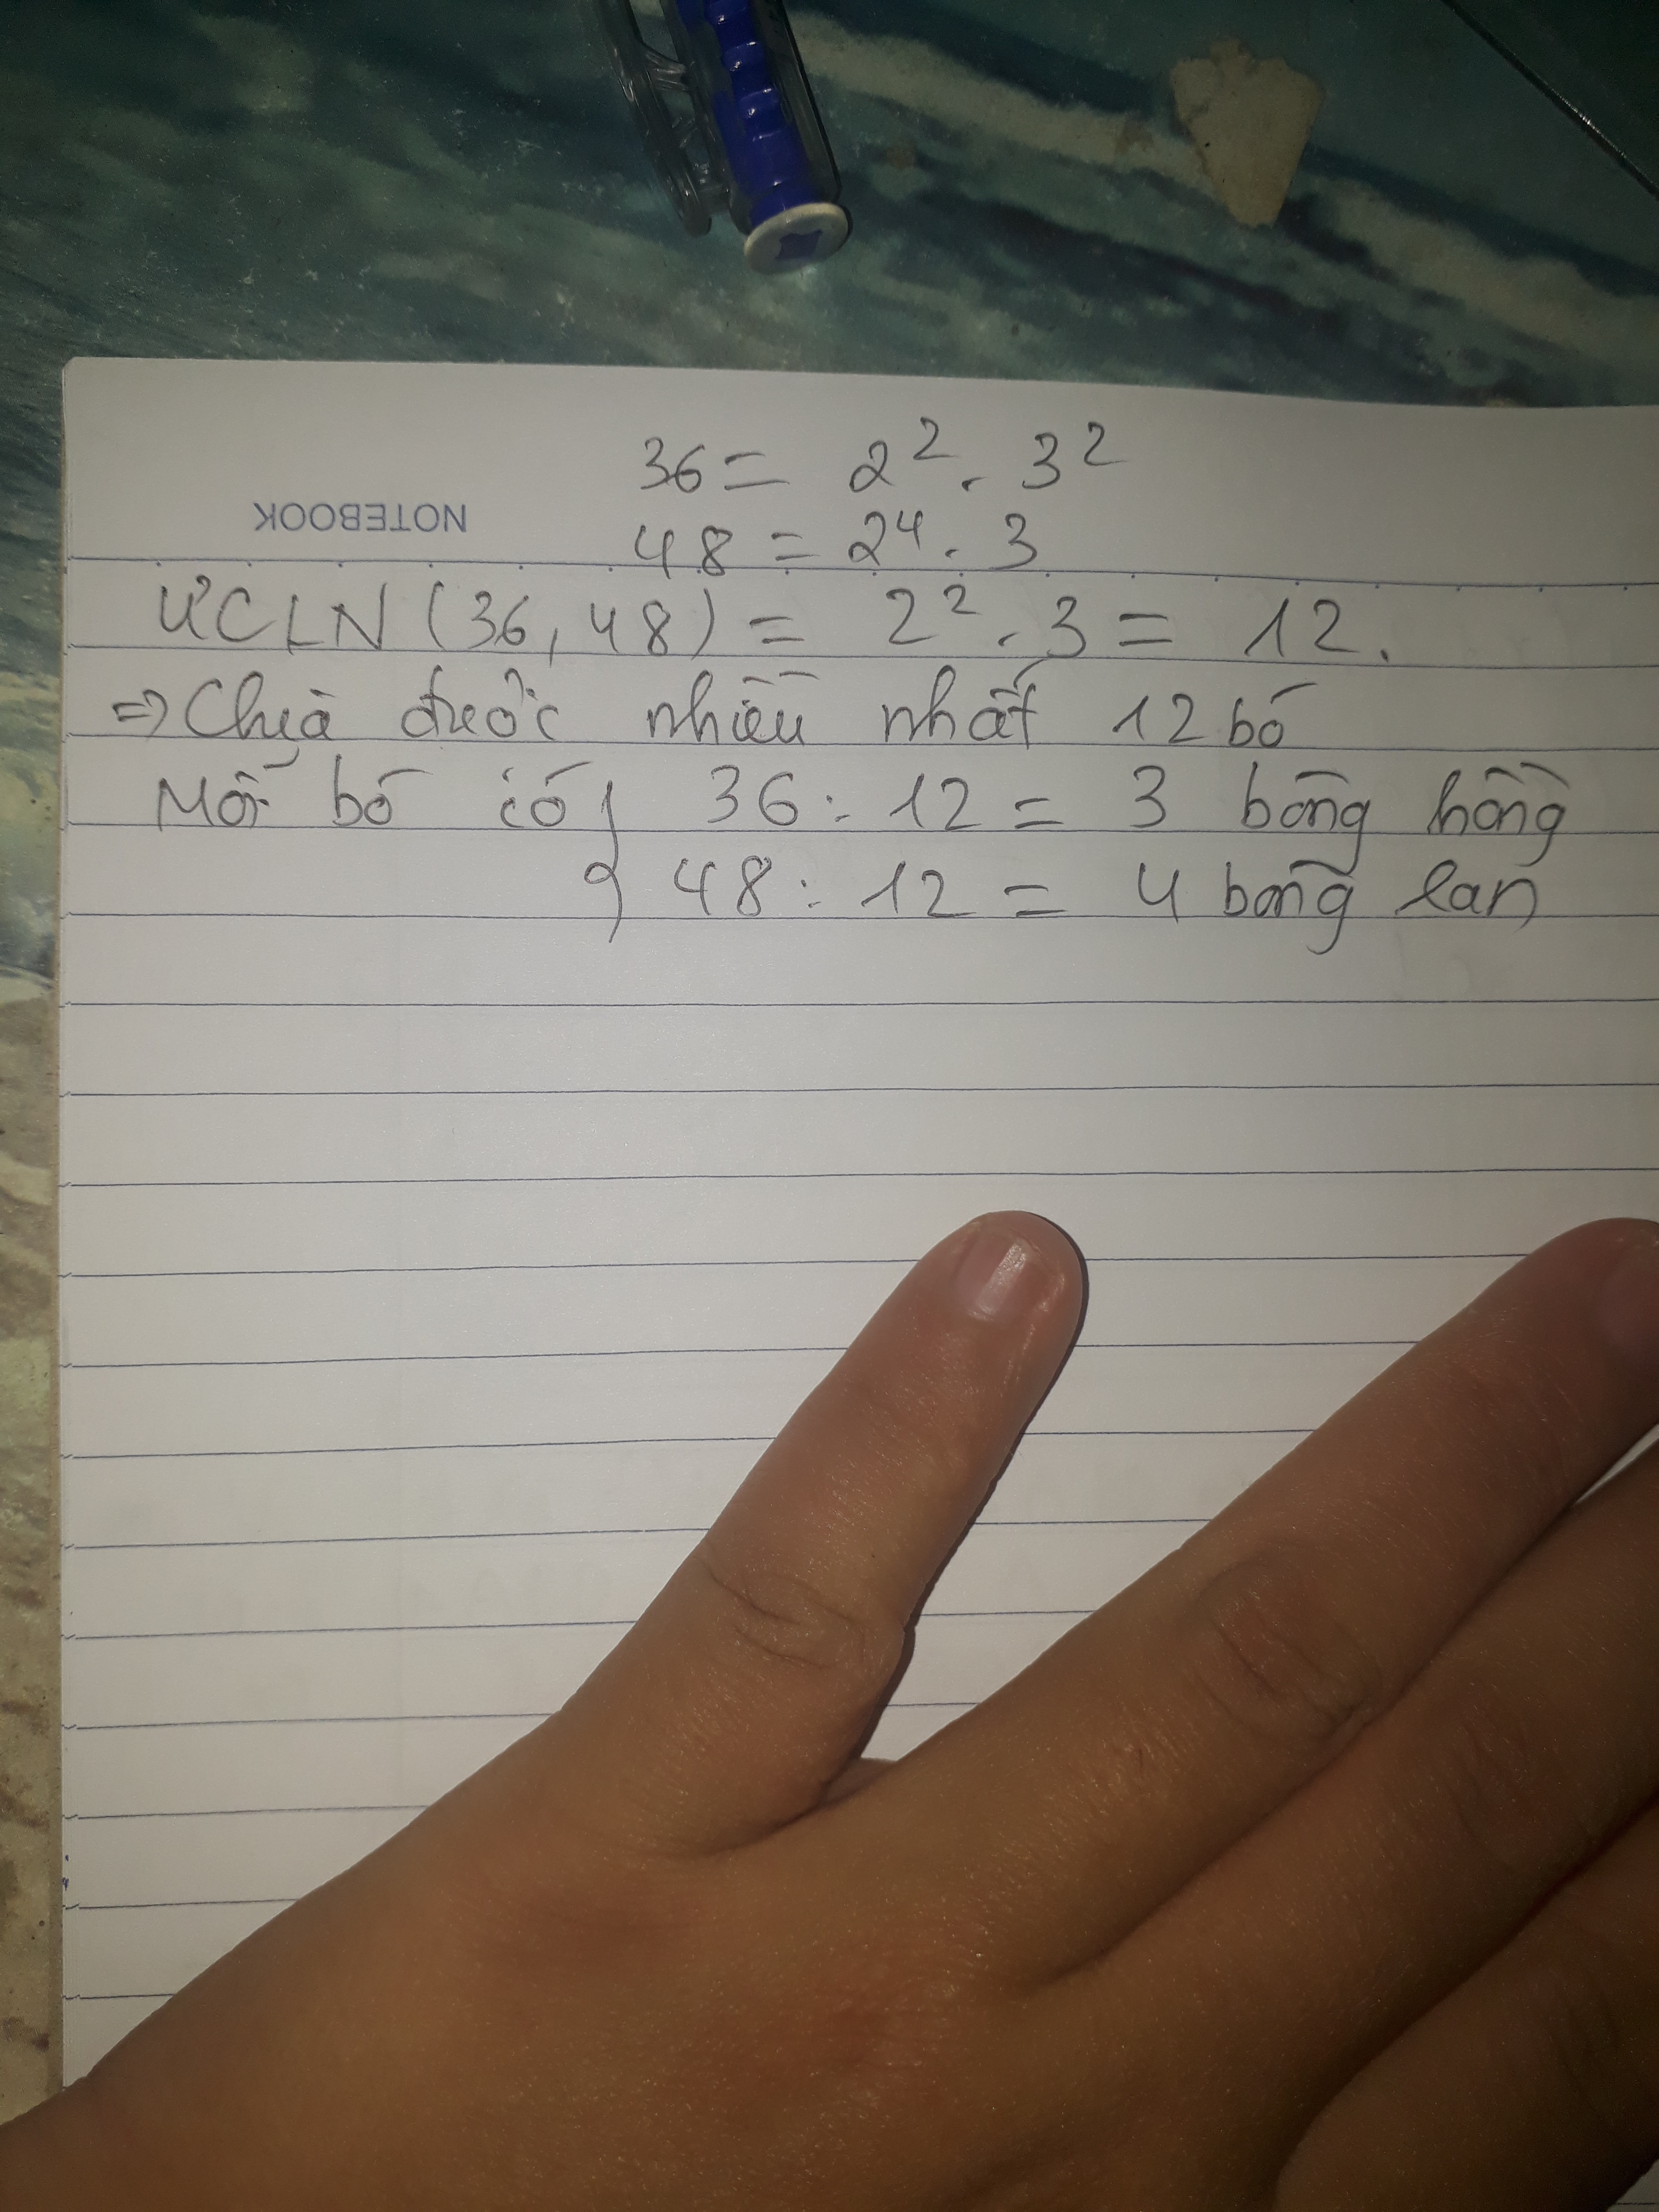 36 = 2² . 3²
NOTEBOOK
48 = 2⁴ . 3
ƯCLN (36, 48) = 2² . 3 = 12.
=> Chia được nhiều nhất 12 bó
Mỗi bó có { 36 : 12 = 3 bông hồng
48 : 12 = 4 bông lan